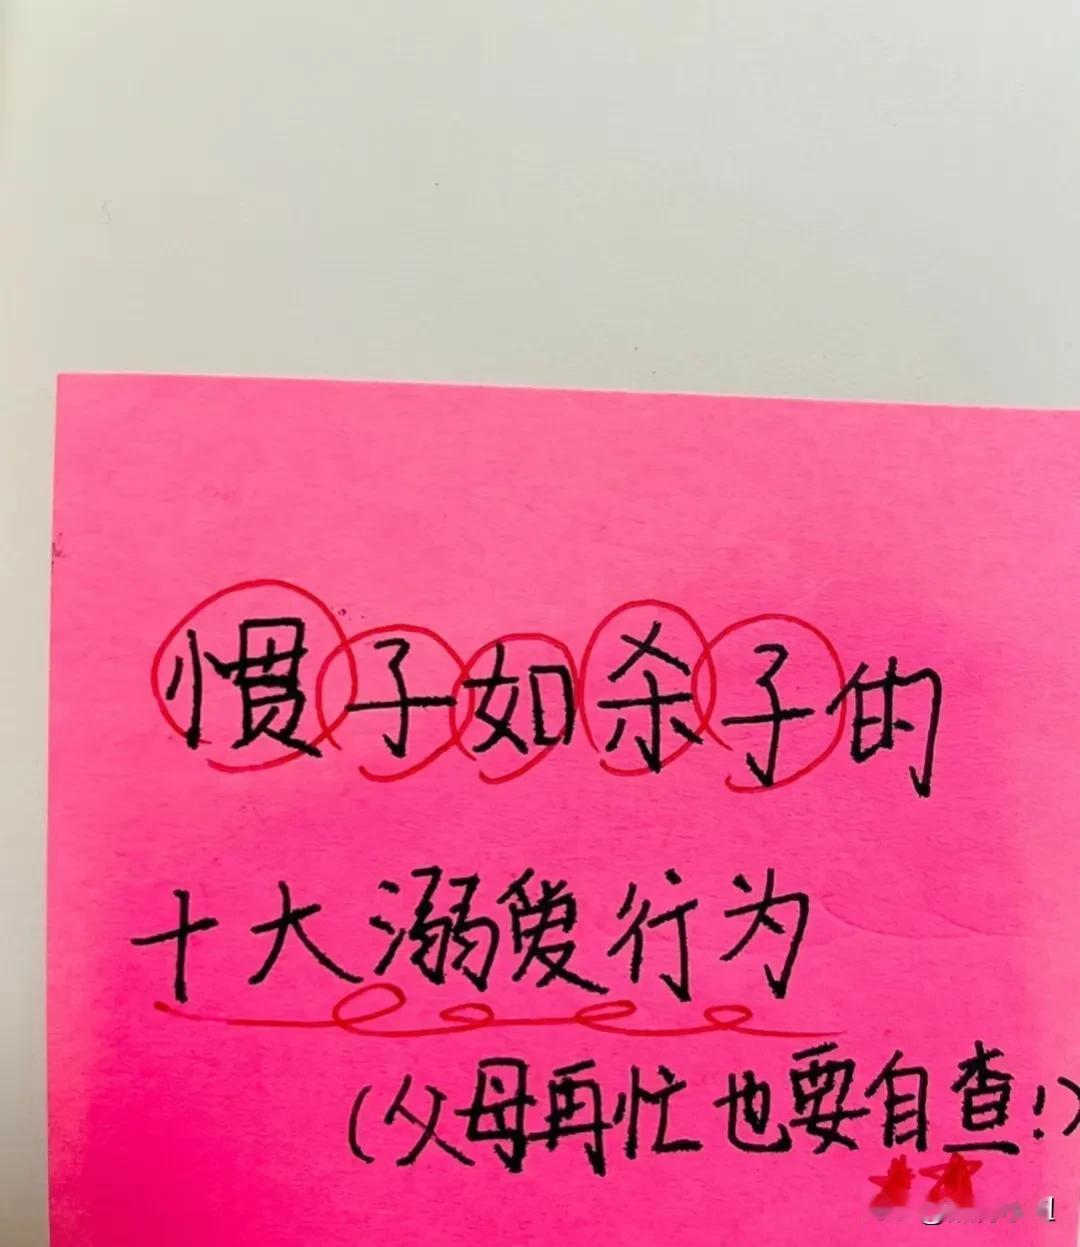 惯子如杀子的
十大溺爱行为
(父母再忙也要自查!)
1